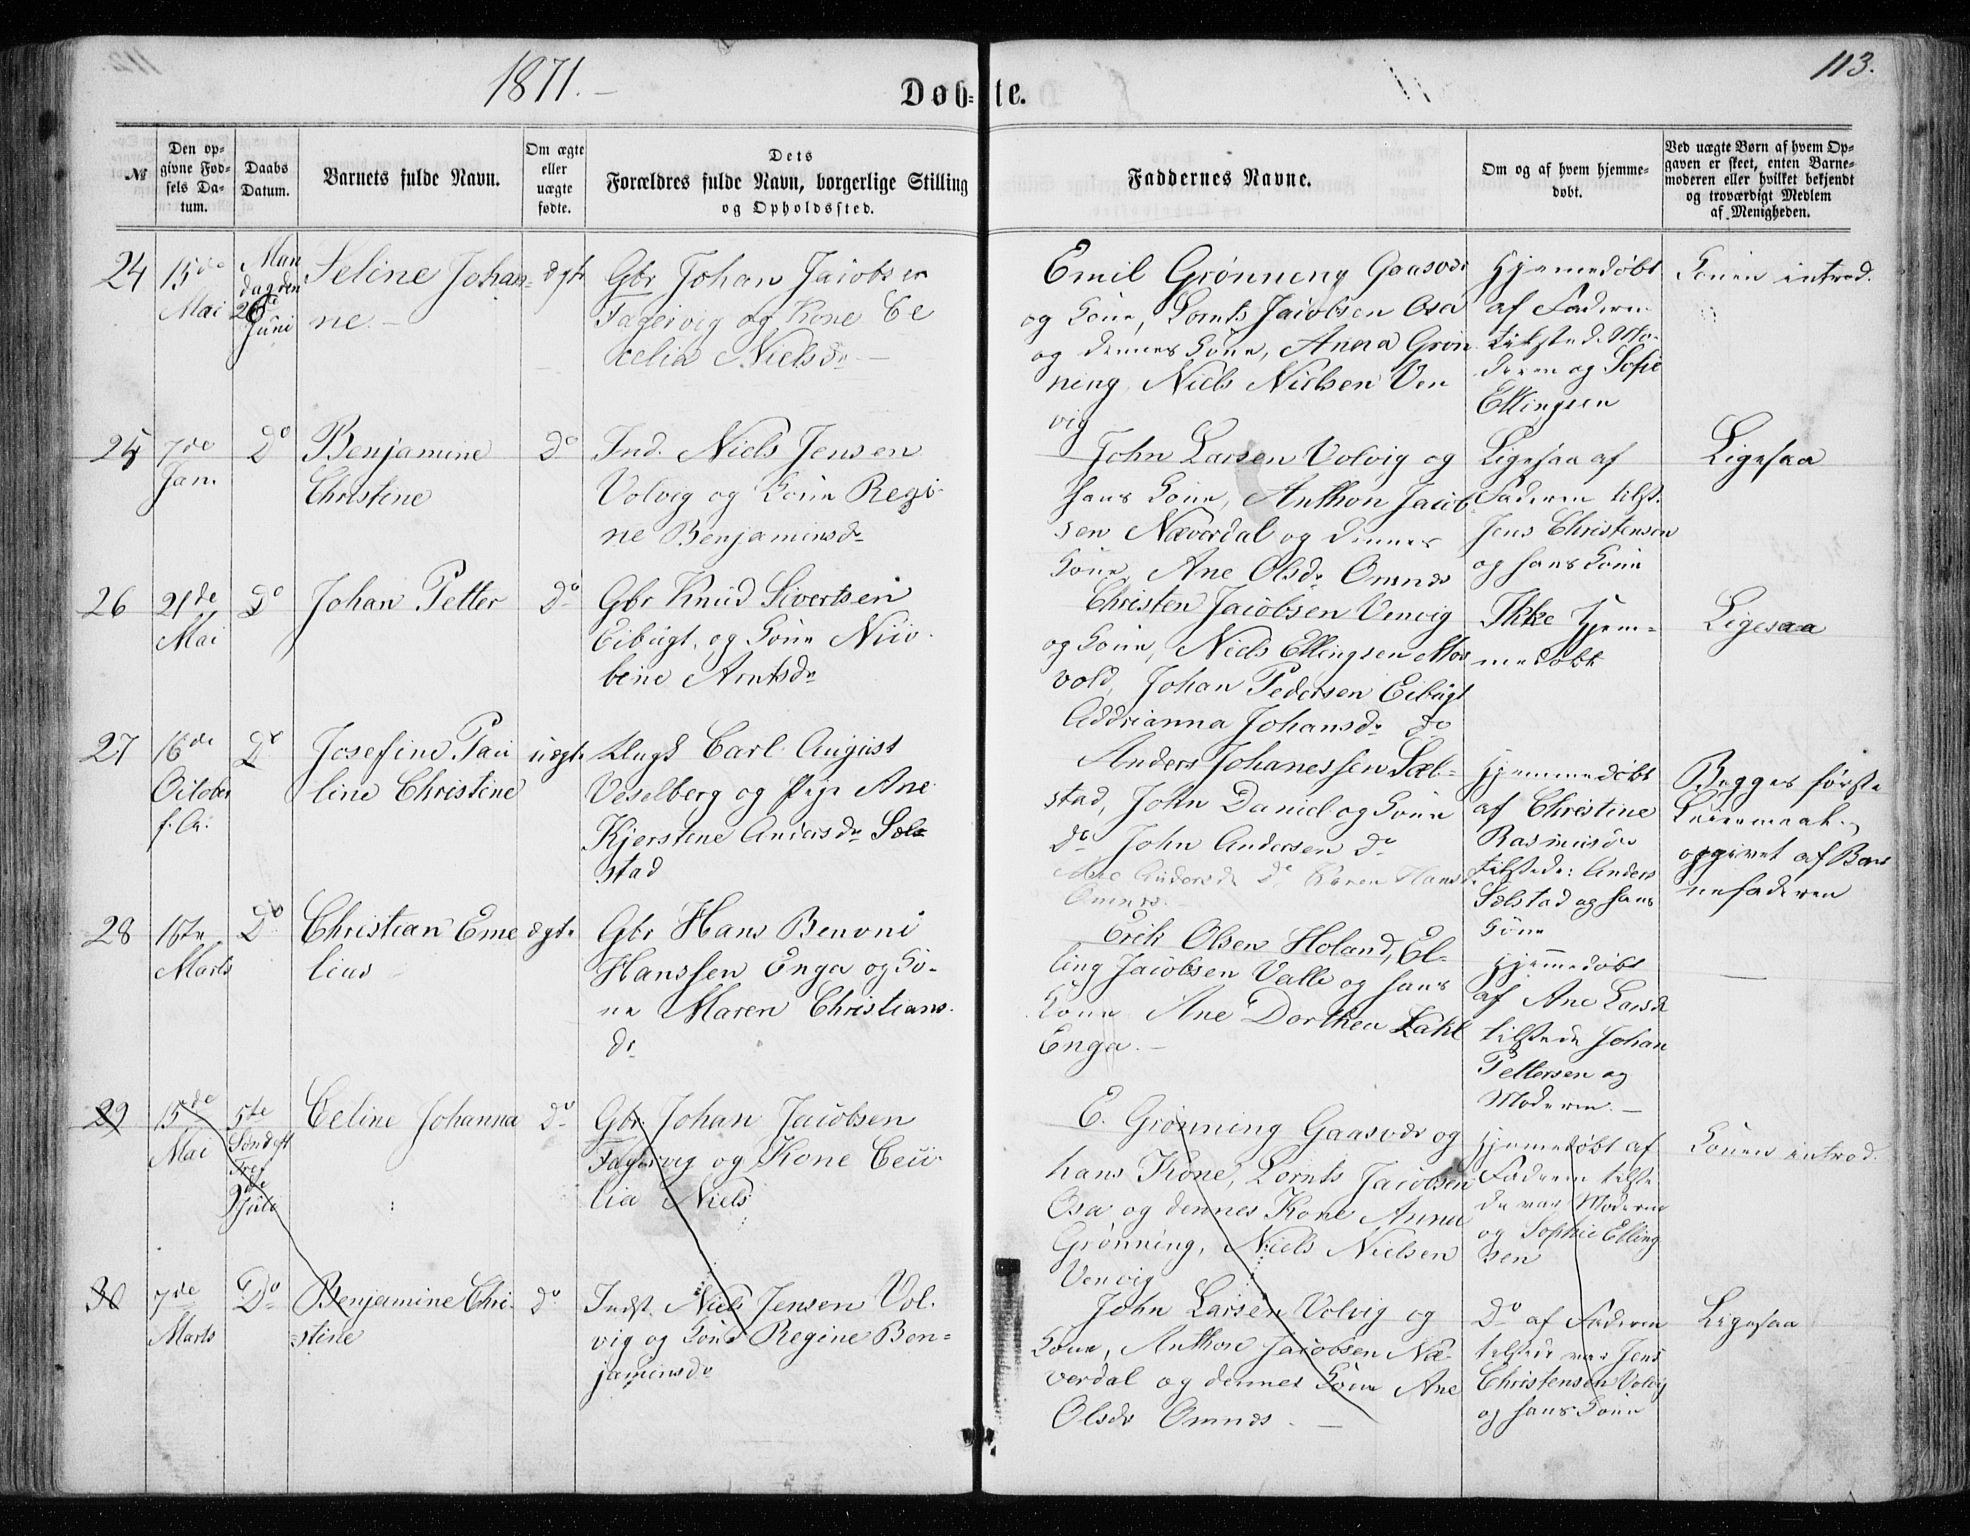 1871.
113.
Døb-te.
№
Den op-
givne Fød-
sels Da-
tum.
Daabs
Datum.
Barnets fulde Navn.
Om ægte
eller
uægte
fødte.
Dets
Forældres fulde Navn, borgerlige Stilling
og Opholdssted.
Faddernes Navne.
Om og af hvem hjemme-
døbt.
Ved uægte Børn af hvem Op-
gaven er skeet, enten Barne-
moderen eller hvilket bekjendt
og troværdigt Medlem
af Menigheden.
24
15de
Mai
Man
dag den
26de
Juni
Seline Johan-
ne.
ægte
Gbr Johan Jacobsen
Fagervig og Kone Ce
celia Nielsdr
Emil Grønning Gaasvær
og Kone, Lornts Jacobsen Osa
og dennes Kone, Anna Grøn
ning, Niels Nielsen Ven
vig
Hjemedøbt
af Faderen
tilstede Mo-
deren og Sofie
Ellingsen
Konen introd.
25
7de
Jan.
Do
Benjamine
Christine
Do
Ind. Niels Jensen
Volvig og Kone Regi-
ne Benjaminsdr
John Larsen Volvig og
hans Kone, Anthon Jacob-
sen Næverdal og dennes
Kone Ane Olsdr Omnes
Ligesaa af
Faderen tilst.
Jens Christensen
og hans Kone
Ligesaa
26
21de
Mai
Do
Johan Petter
Do
Gbr Knud Sivertsen
Eibugt, og Kone
bine Arntsdr
Christen Jacobsen Venvig
og Kone, Niels Ellingsen Mos
vold, Johan Pedersen Eibugt
Addrianna Johansdr do
Ikke hjem-
medøbt
Ligesaa
27
16de
October
f. A.
Do
Josefine Pau
line Christine
uægte
Ungk Carl August
Veselberg og Pige Ane
Kjerstine Andersdr Sæl
stad
Anders Johanessen Sæl-
stad, John Daniel og Kone
do John Andersen do
Ane Andersdr do Karen Hansdr
Omnes.
Hjemmedøbt
af Christine
Rasmusdr
tilstede: Anders
Sælstad og hans
Kone
Begges første
Leiermaal
opgivet af Bar
nefaderen
28
16de
Marts
Do
Christian Eme
lius
ægte
Gbr Hans Benoni
Hanssen Enga og Ko-
ne Maren Christians-
dr
Erik Olsen Holand, El-
ling Jacobsen Valle og hans
Kone Ane Dorthea
Enga.
Hjemmedøbt
af Ane Larsdr
tilstede Johan
Pettersen og
Moderen.
29
15de
Mai
5te
Sønd eft
Tref
de
Juli
Celine Johanna
Do
Gbr. Johan Jacobsen
Fagervig og Kone Ceci-
lia Niels
E. Grønning Gaasvær og
hans Kone, Lornts Jacobsen
Osa og dennes Kone Anna
Grønning, Niels Nielsen
Venvig
Hjemmedøbt af
Faderen tilste
de var Moderen
og Sophie Elling
sen
Konen introd.
30
7de
Marts
Do
Benjamine Chri-
stine
Do
Indst. Niels Jensen Vol-
vig og Kone Regine Ben-
jaminsdr
John Larsen Volvig og
Kone, Anthon Jacobsen Næ-
verdal og dennes Kone Ane
Olsdr Omnes.
Do af Faderen
tilstede var Jens
Christensen Volvig
og hans Kone
Ligesaa